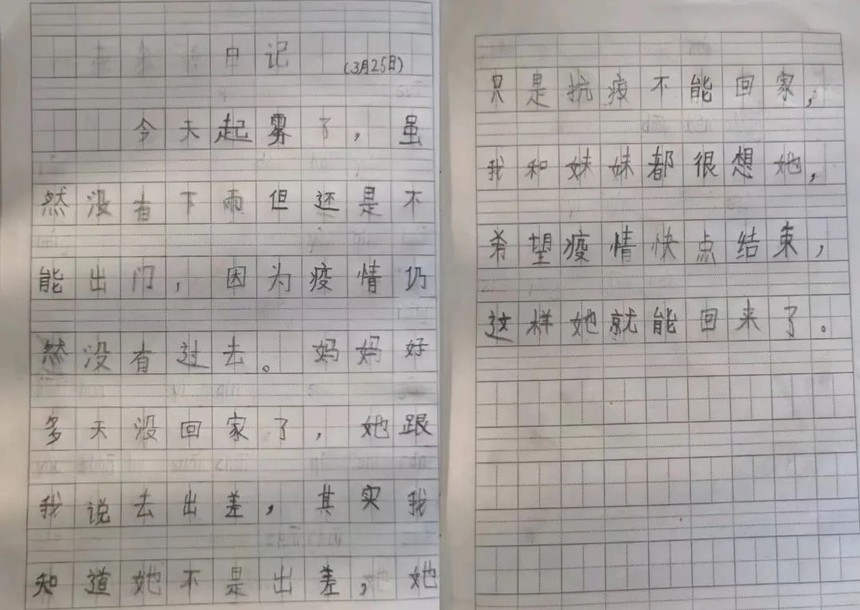 日记
(3月25日)
今天起雾了，虽
然没有下雨但还是不
能出门，因为疫情仍
然没有过去。妈妈好
多天没回家了，她跟
我说去出差，其实我
知道她不是出差，她
只是抗疫不能回家，
我和妹妹都很想她，
希望疫情快点结束，
这样她就能回来了。